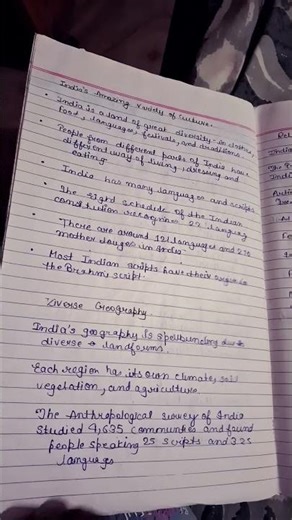 India's Amazing Variety of Culture.
• India is a land of great diversity - in clothes,
food, languages, festivals, and traditions.
• People from different parts of India have
different way of living, dressing and
eating
India has many languages and scripts
• The eight schedule of the Indian
constitution recognises 22 languag
• There are around 121 languages and 270
mother touges in India.
• Most Indian scripts have their origin in
the Brahmi script.
Diverse Geography
India's geography is spellbinding due to
diverse → landforms.
Each region has its own climate, soil
vegetation, and agriculture.
The Anthropological survey of India
studied 4,635 communites and found
people speaking 25 scripts and 325
languages
Rel
India
The
Indi